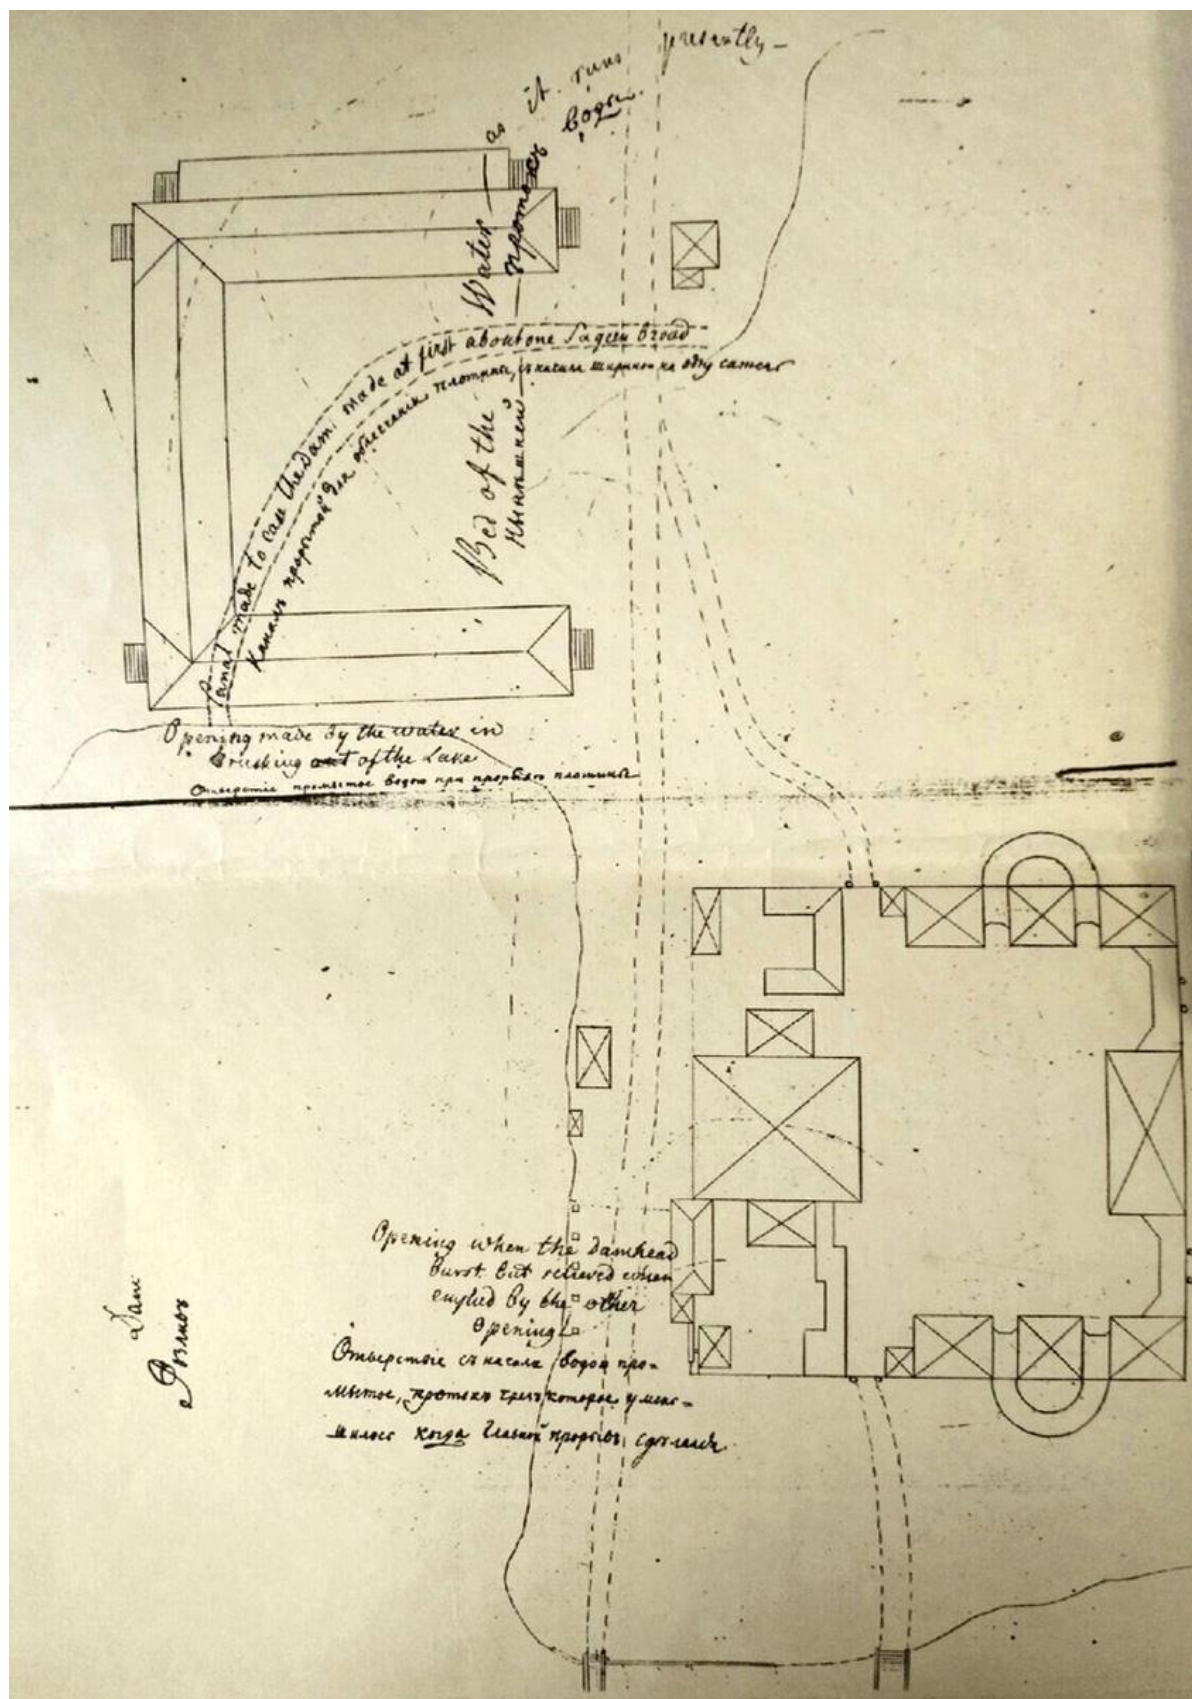 Bed of the Water — as it runs presently —
нынѣшней протокъ воды.
Canal made to ease the Dam, made at first about one Sagen broad
Каналъ прорытой для облегченія плотины, съ начала шириною на одну сажень
Opening made by the water in
brusking out of the Lake
Отверстіе промытое водою при прорытіи плотины
Opening when the damhead
burst but relieved when
emptied by the other
Opening
Отверстіе съ начала водою про=
мытое, протокъ чрезъ которое умень=
шилось когда главной прорывъ сдѣлался
Dam